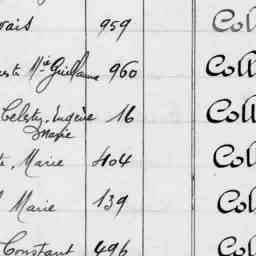 959 Col
Mie Guillaume 960 Coll
Celeste, Eugène 16 Coll
Marie
Marie 404 Col
Marie 139 Col
Constant 496 Col